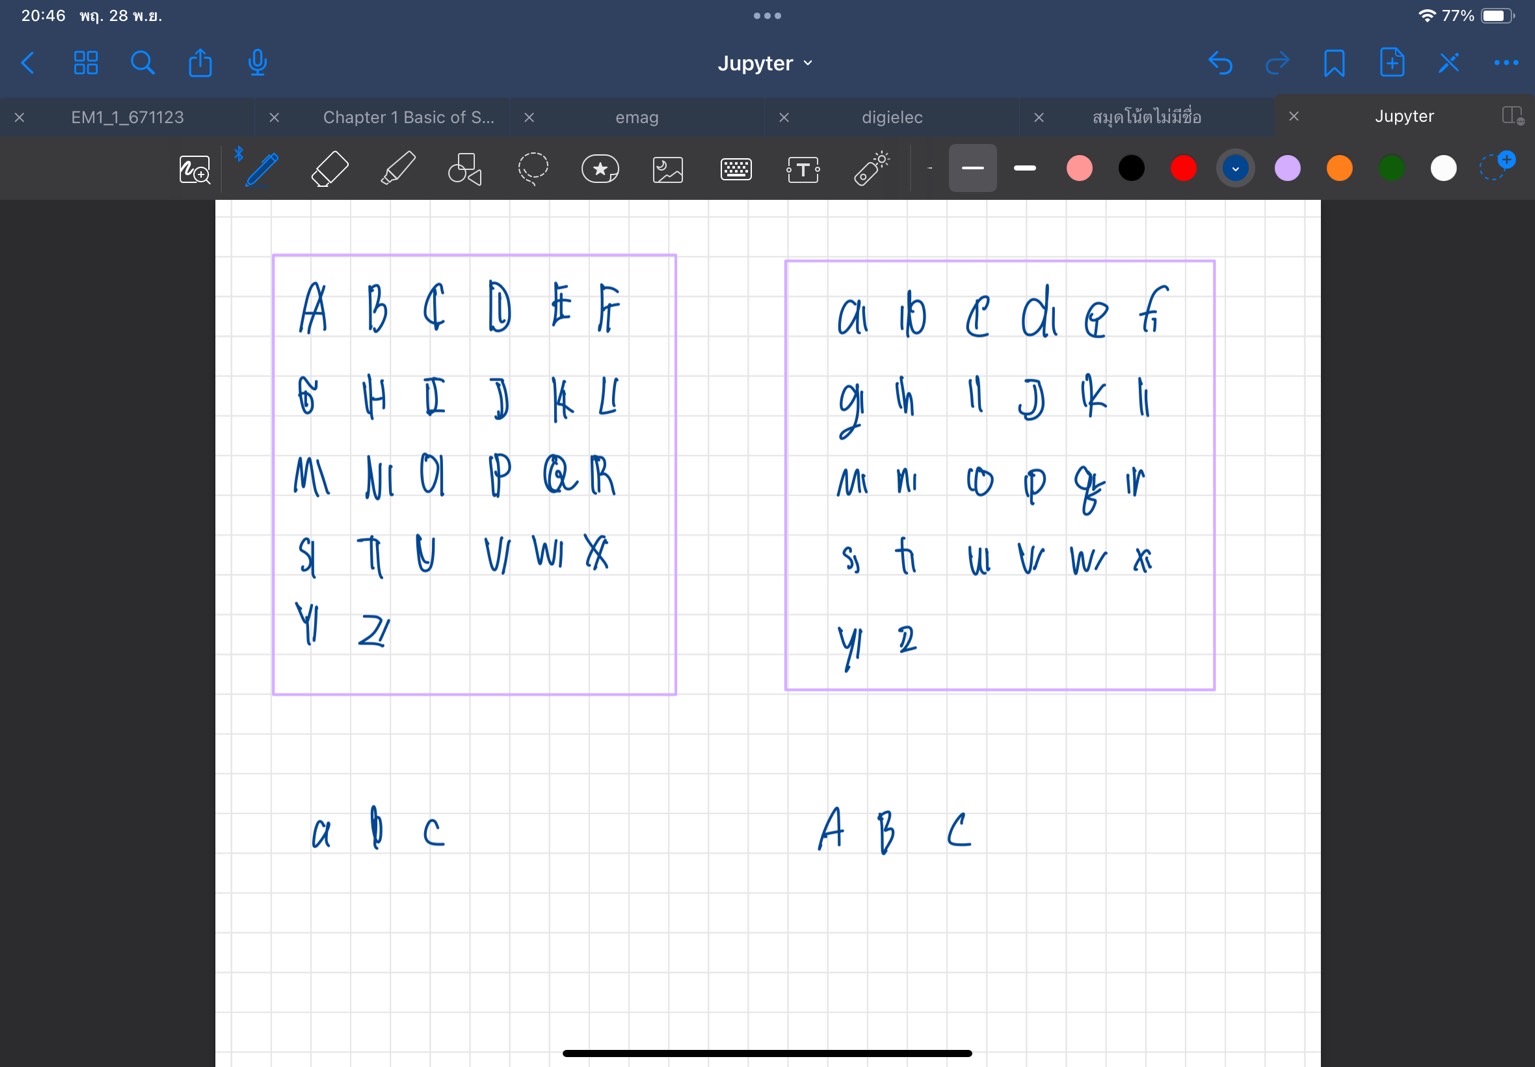 20:46 พฤ. 28 พ.ย.
77%
Jupyter
EM1_1_671123
Chapter 1 Basic of S...
emag
digielec
สมุดโน้ตไม่มีชื่อ
Jupyter
T
A B C D E F
G H I J K L
M N O P Q R
S T U V W X
Y Z
a b c d e f
g h i j k l
m n o p q r
s t u v w x
y z
a b c
A B C